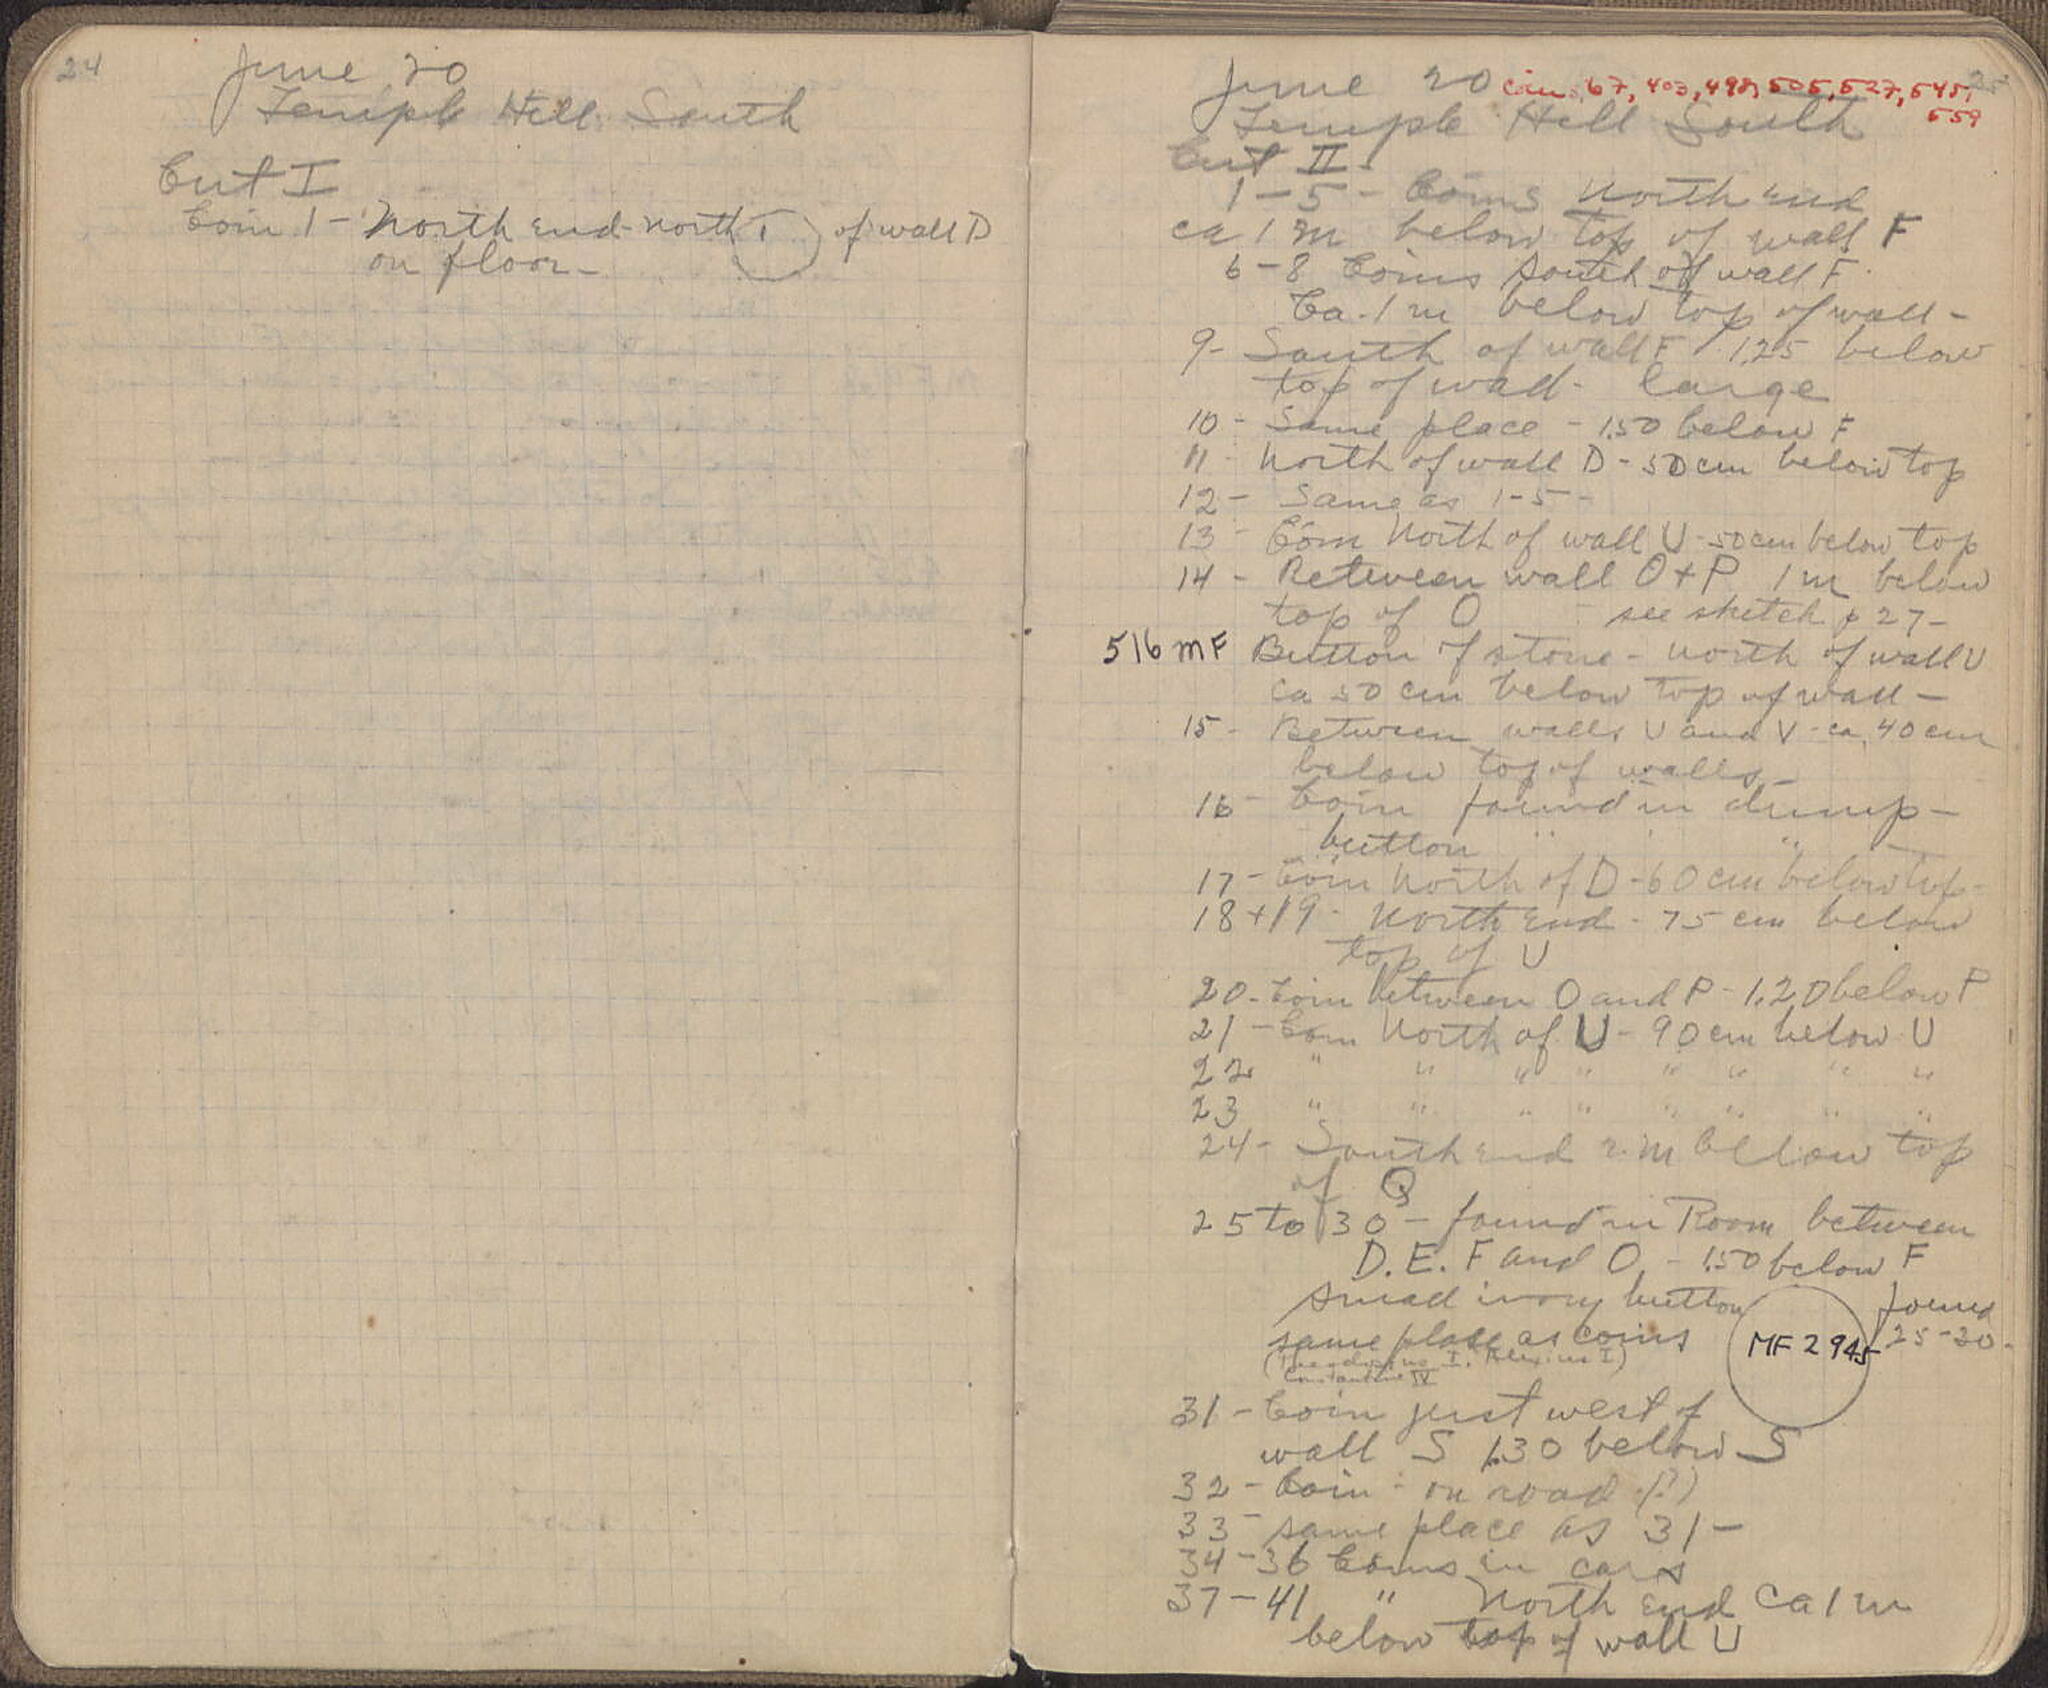 24
June 20
Temple Hill South
Cut I
Coin 1 - North end - north of wall D
on floor -
June 20 coins, 67, 403, 498, 505, 527, 545, 25
559
Temple Hill South
Cut II -
1-5 - Coins North end
ca 1 m below top of wall F
6-8 Coins South of wall F.
Ca. 1 m below top of wall -
9- South of wall F 1.25 below
top of wall - large
10 - Same place - 1.50 below F
11 - North of wall D - 50 cm below top
12 - Same as 1-5 -
13 - Coin North of wall U - 50 cm below top
14 - Between wall O + P 1 m below
top of O - see sketch p 27 -
516 MF Button of stone - north of wall U
ca 50 cm below top of wall -
15 - Between walls U and V - ca. 40 cm
below top of walls -
16 - Coin found in dump -
button " "
17 - Coin North of D - 60 cm below top -
18 + 19 - North end - 75 cm below
top of U
20 - Coin between O and P - 1.20 below P
21 - Coin North of U - 90 cm below U
22 " " " " " " " "
23 " " " " " " " "
24 - South end 2. m below top
of Q
25 to 30 - found in Room between
D. E. F and O. - 1.50 below F
Small ivory button found
same place as coins MF 2945 25-30 -
(Theodosius I, Alexius I)
Constantine IV
31 - Coin just west of
wall S 1.30 below S
32 - Coin - on road (?)
33 - same place as 31 -
34 - 36 Coins in cars
37 - 41 " North end Ca 1 m
below top of wall U